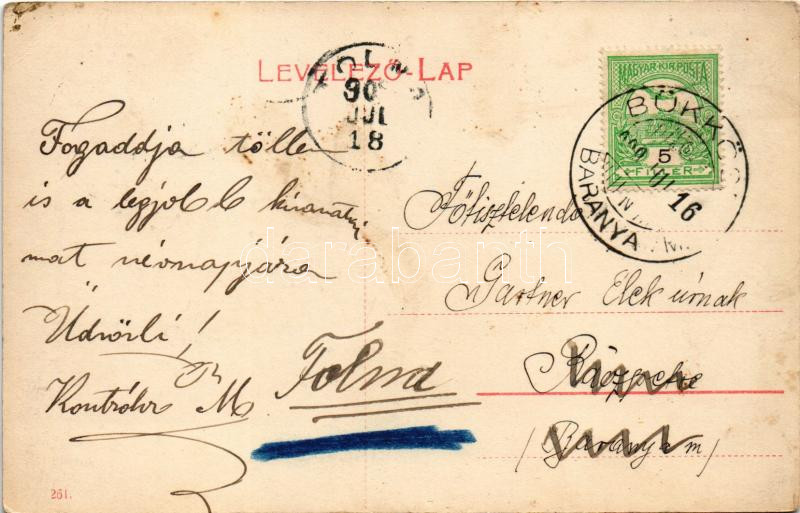 LEVELEZŐ-LAP
TOLNA
90
JUL
18
MAGYAR·KIR·POSTA
5
FILLÉR
BÜKKÖ
909 JUL 16
BARANYA M.
Fogaddja tölle
is a legjobb kivánatai
mat névnapjára
Üdvözli!
Kontróhr M
Főtisztelendő
Gartner Elek úrnak
Ráczpetre
(Baranya m)
Tolna
261.
darabanth